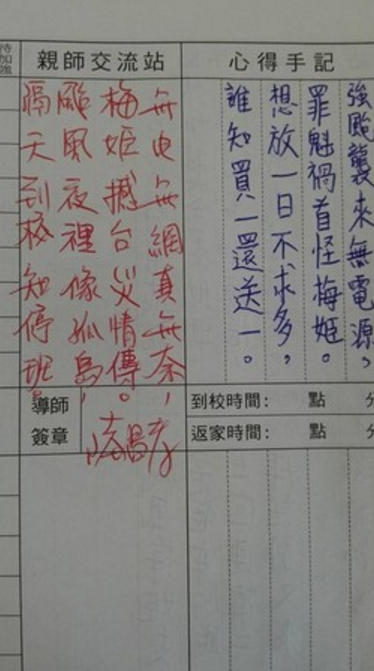 待加強
親師交流站
心得手記
強颱襲來無電源，
罪魁禍首怪梅姬。
想放一日不求多，
誰知買一還送一。
無电無網真無奈，
梅姬撼台災情傳。
颱風夜裡像孤島，
隔天到校知停班。
導師簽章
到校時間： 點 分
返家時間： 點 分